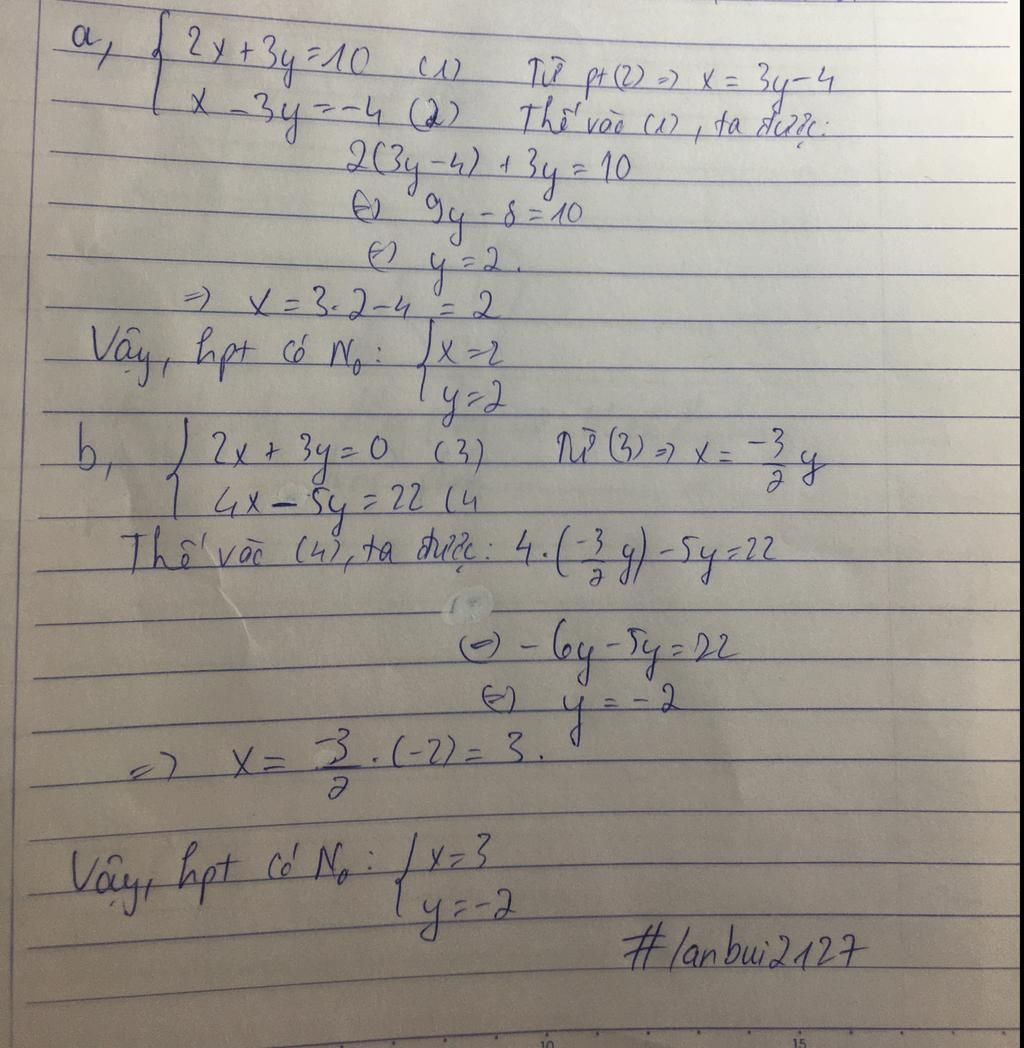 a, { 2x + 3y = 10 (1) Từ pt (2) => x = 3y - 4
x - 3y = -4 (2) Thế vào (1), ta được:
2(3y - 4) + 3y = 10
(=) 9y - 8 = 10
(=) y = 2.
=> x = 3.2 - 4 = 2
Vậy, hpt có No: { x = 2
y = 2
b, { 2x + 3y = 0 (3) Từ (3) => x = -3/2 y
4x - 5y = 22 (4
Thế vào (4), ta được: 4.(-3/2 y) - 5y = 22
(=) - 6y - 5y = 22
(=) y = -2
=> x = -3/2 . (-2) = 3.
Vậy, hpt có No: { x = 3
y = -2
#lanbui2127
10 15